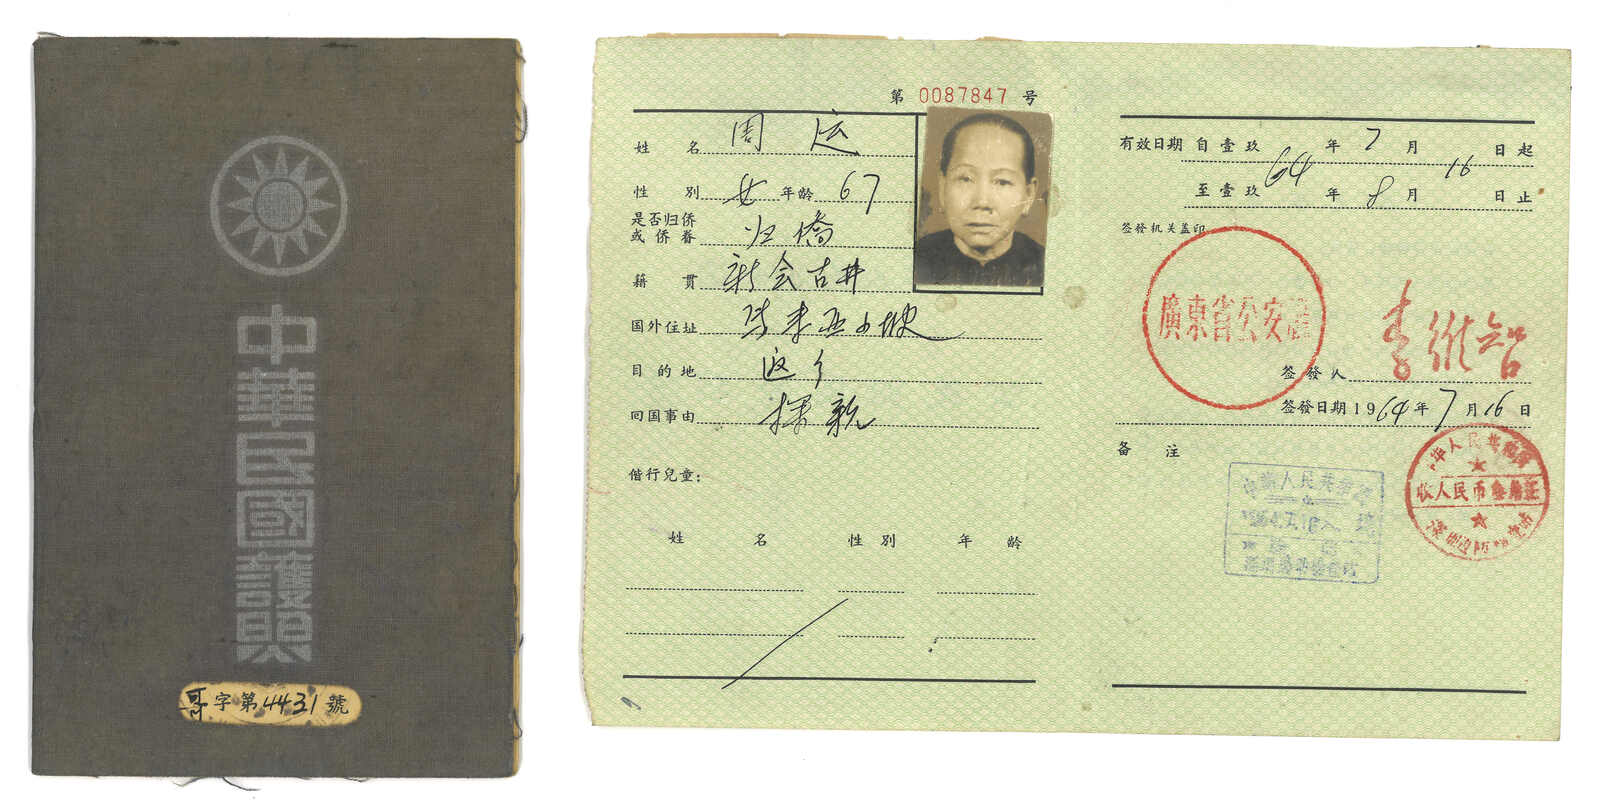 中華民國護照
哥字第4431號
第 0087847 号
姓 名 周 运
性 别 女 年龄 67
是否归侨
或侨眷 归侨
籍 贯 新会古井
国外住址
目的地 返乡
回国事由 探亲
偕行兒童：
姓 名 性 别 年 龄
有效日期 自壹玖64年7月16日起
至壹玖 年8月 日止
签發机关盖印
廣東省公安廳
签發人 李维智
签發日期 1964年7月16日
备 注
中华人民共和国
收人民币叁角正